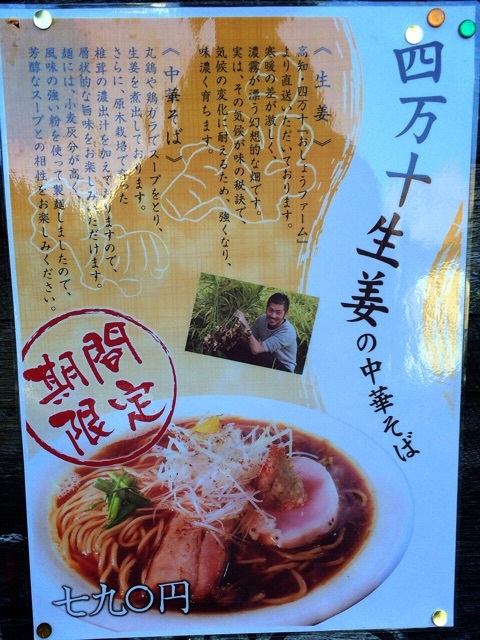 四万十生姜の中華そば
《生姜》
高知・四万十『おしょうファーム』
より直送いただいております。
寒暖の差が激しく、
濃霧が漂う幻想的な畑です。
実は、その気候が味の秘訣で、
気候の変化に耐えるため、強くなり、
味濃く育ちます。
《中華そば》
丸鶏や鶏ガラでスープをとり、
生姜を煮出しております。
さらに、原木栽培で育った
椎茸の濃出汁を加えていますので、
層状的な旨味をお楽しみいただけます。
麺には、小麦灰分が高く、
風味の強い粉を使って製麺しましたので、
芳醇なスープとの相性をお楽しみください。
期間
限定
七九〇円